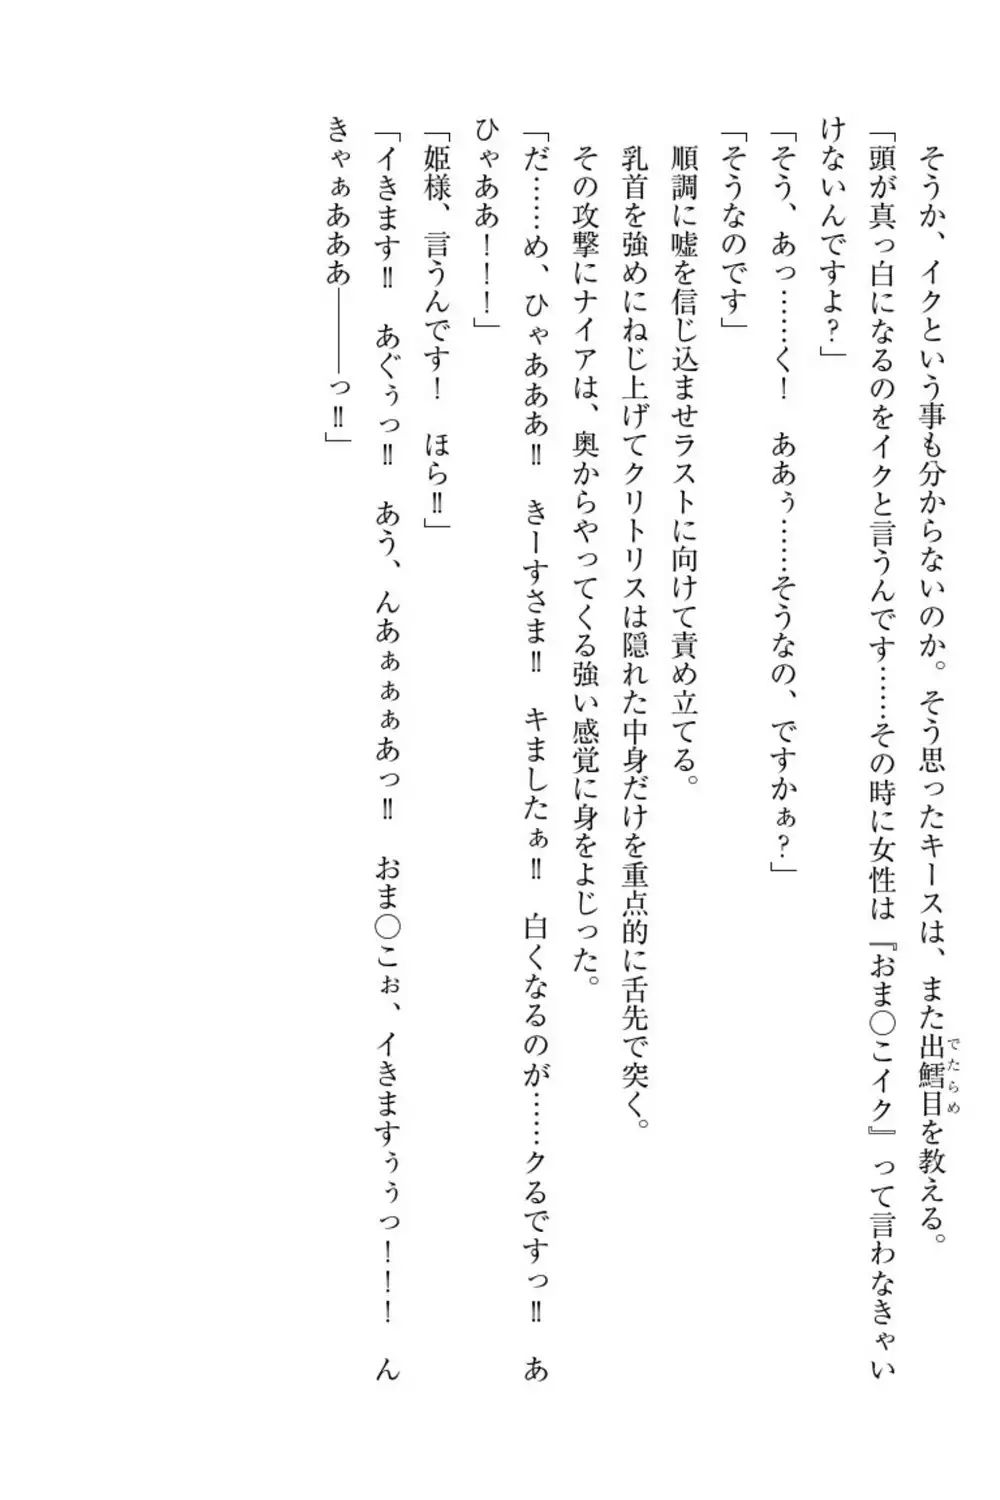 そうか、イクという事も分からないのか。そう思ったキースは、また出鱈目を教える。
でたらめ
「頭が真っ白になるのをイクと言うんです……その時に女性は『おま◯こイク』って言わなきゃい
けないんですよ?」
「そう、あっ……く!　ああぅ……そうなの、ですかぁ?」
「そうなのです」
順調に嘘を信じ込ませラストに向けて責め立てる。
乳首を強めにねじ上げてクリトリスは隠れた中身だけを重点的に舌先で突く。
その攻撃にナイアは、奥からやってくる強い感覚に身をよじった。
「だ……め、ひゃあああ‼　きーすさま‼　キましたぁ‼　白くなるのが……クるですっ‼　あ
ひゃああ!!!」
「姫様、言うんです!　ほら‼」
「イきます‼　あぐぅっ‼　あう、んあぁぁぁあっ‼　おま◯こぉ、イきますぅぅっ!!!　ん
きゃぁあああ―――っ‼」